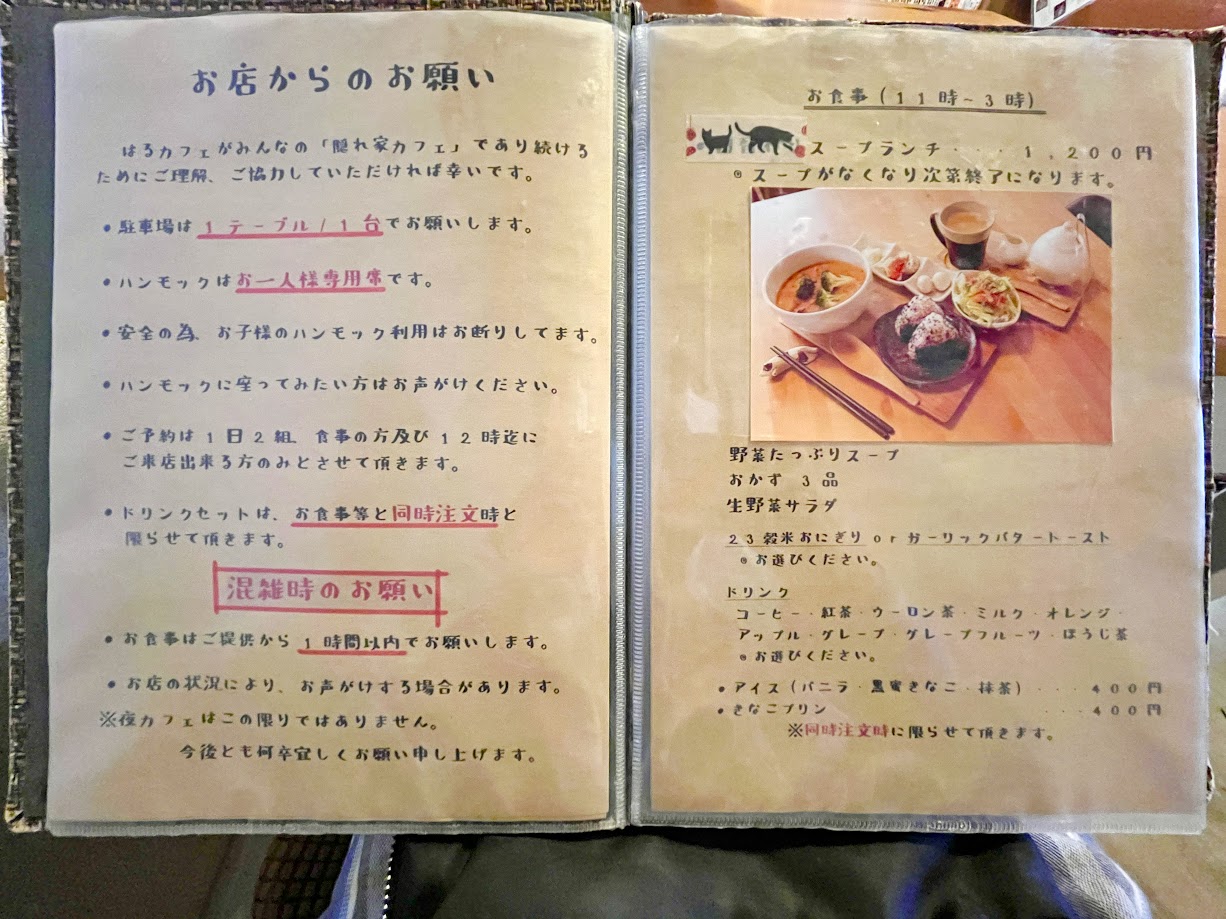 お店からのお願い
はるカフェがみんなの「隠れ家カフェ」であり続ける
ためにご理解、ご協力していただければ幸いです。
・駐車場は1テーブル/1台でお願いします。
・ハンモックはお一人様専用席です。
・安全の為、お子様のハンモック利用はお断りしてます。
・ハンモックに座ってみたい方はお声がけください。
・ご予約は1日2組、食事の方及び12時迄に
ご来店出来る方のみとさせて頂きます。
・ドリンクセットは、お食事等と同時注文時と
限らせて頂きます。
混雑時のお願い
・お食事はご提供から1時間以内でお願いします。
・お店の状況により、お声がけする場合があります。
※夜カフェはこの限りではありません。
今後とも何卒宜しくお願い申し上げます。
お食事(11時~3時)
スープランチ・・・・1,200円
◎スープがなくなり次第終了になります。
野菜たっぷりスープ
おかず 3品
生野菜サラダ
23穀米おにぎりorガーリックバタートースト
◎お選びください。
ドリンク
コーヒー・紅茶・ウーロン茶・ミルク・オレンジ・
アップル・グレープ・グレープフルーツ・ほうじ茶
◎お選びください。
・アイス(バニラ・黒蜜きなこ・抹茶)・・・・400円
・きなこプリン ・・・・400円
※同時注文時に限らせて頂きます。